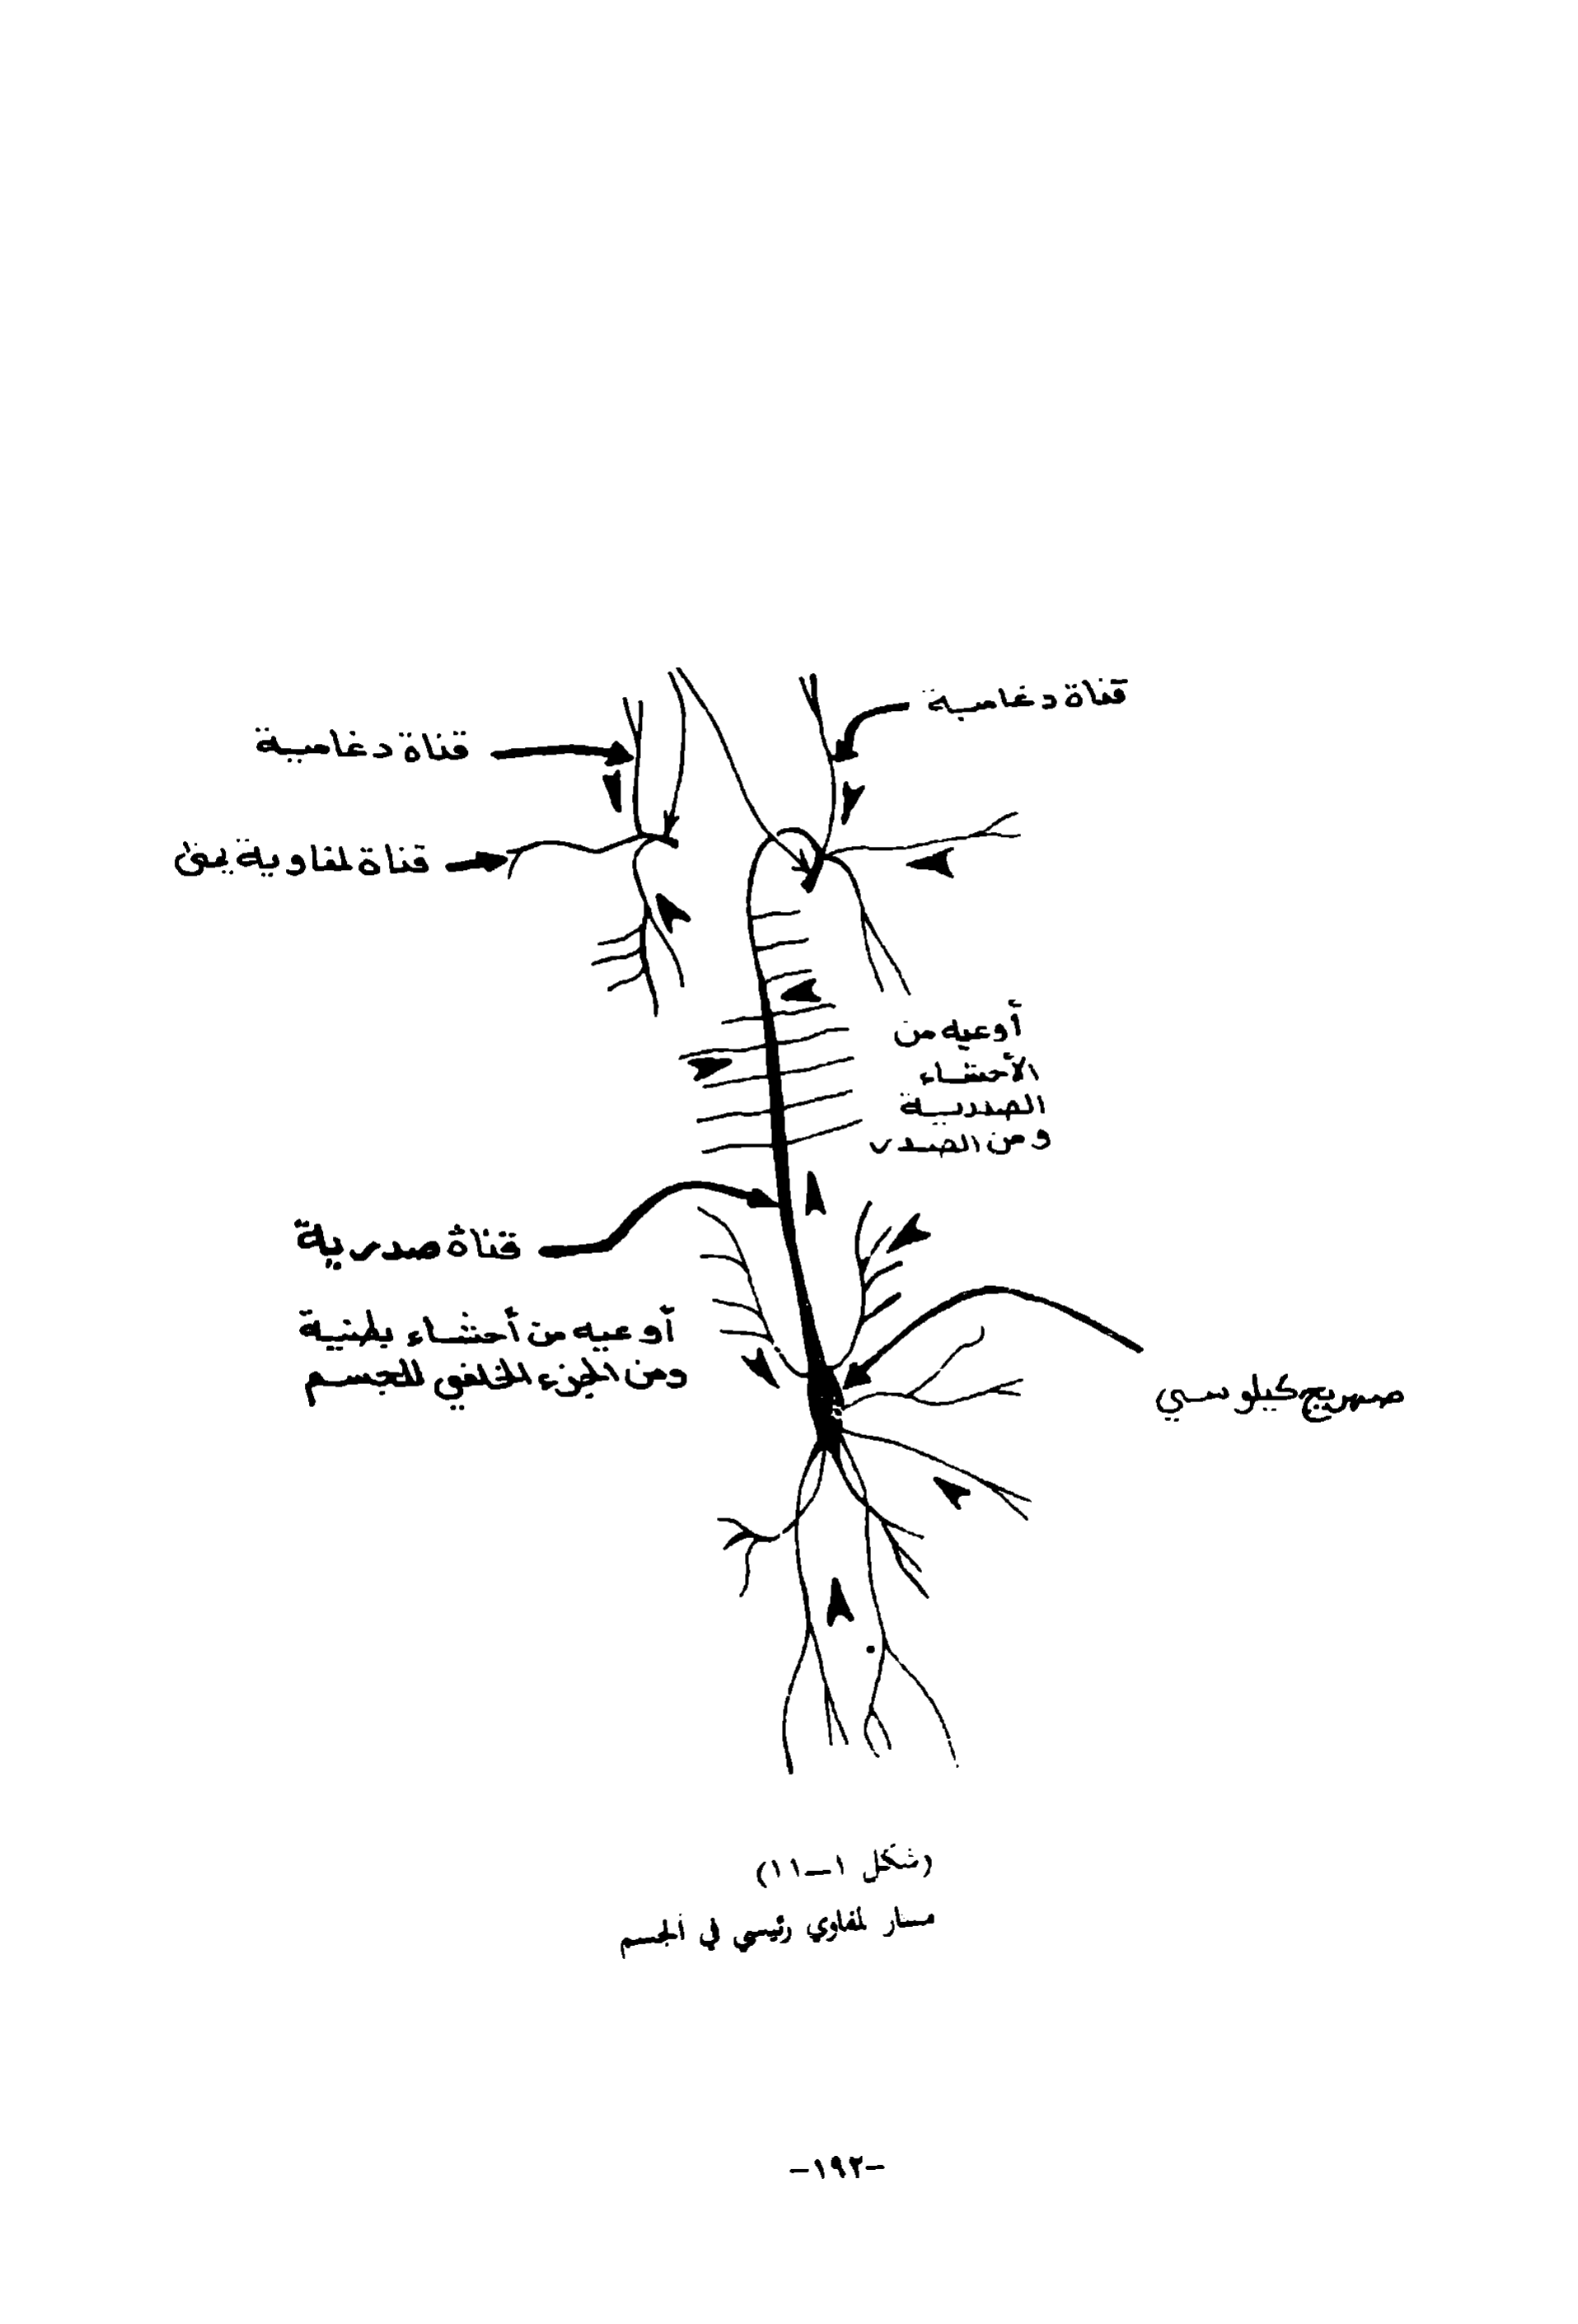 قناة دغامية
قناة دغامية
قناة لمفاوية يمنى
أوعيه من
الأحشاء
الصدرية
ومن الصدر
قناة صدرية
أوعيه من أحشاء بطنية
ومن الجزء الخلفي للجسم
صهريج كيلوسي
(شكل ١-١١)
مسار لمفاوي رئيسي في الجسم
-١٩٢-